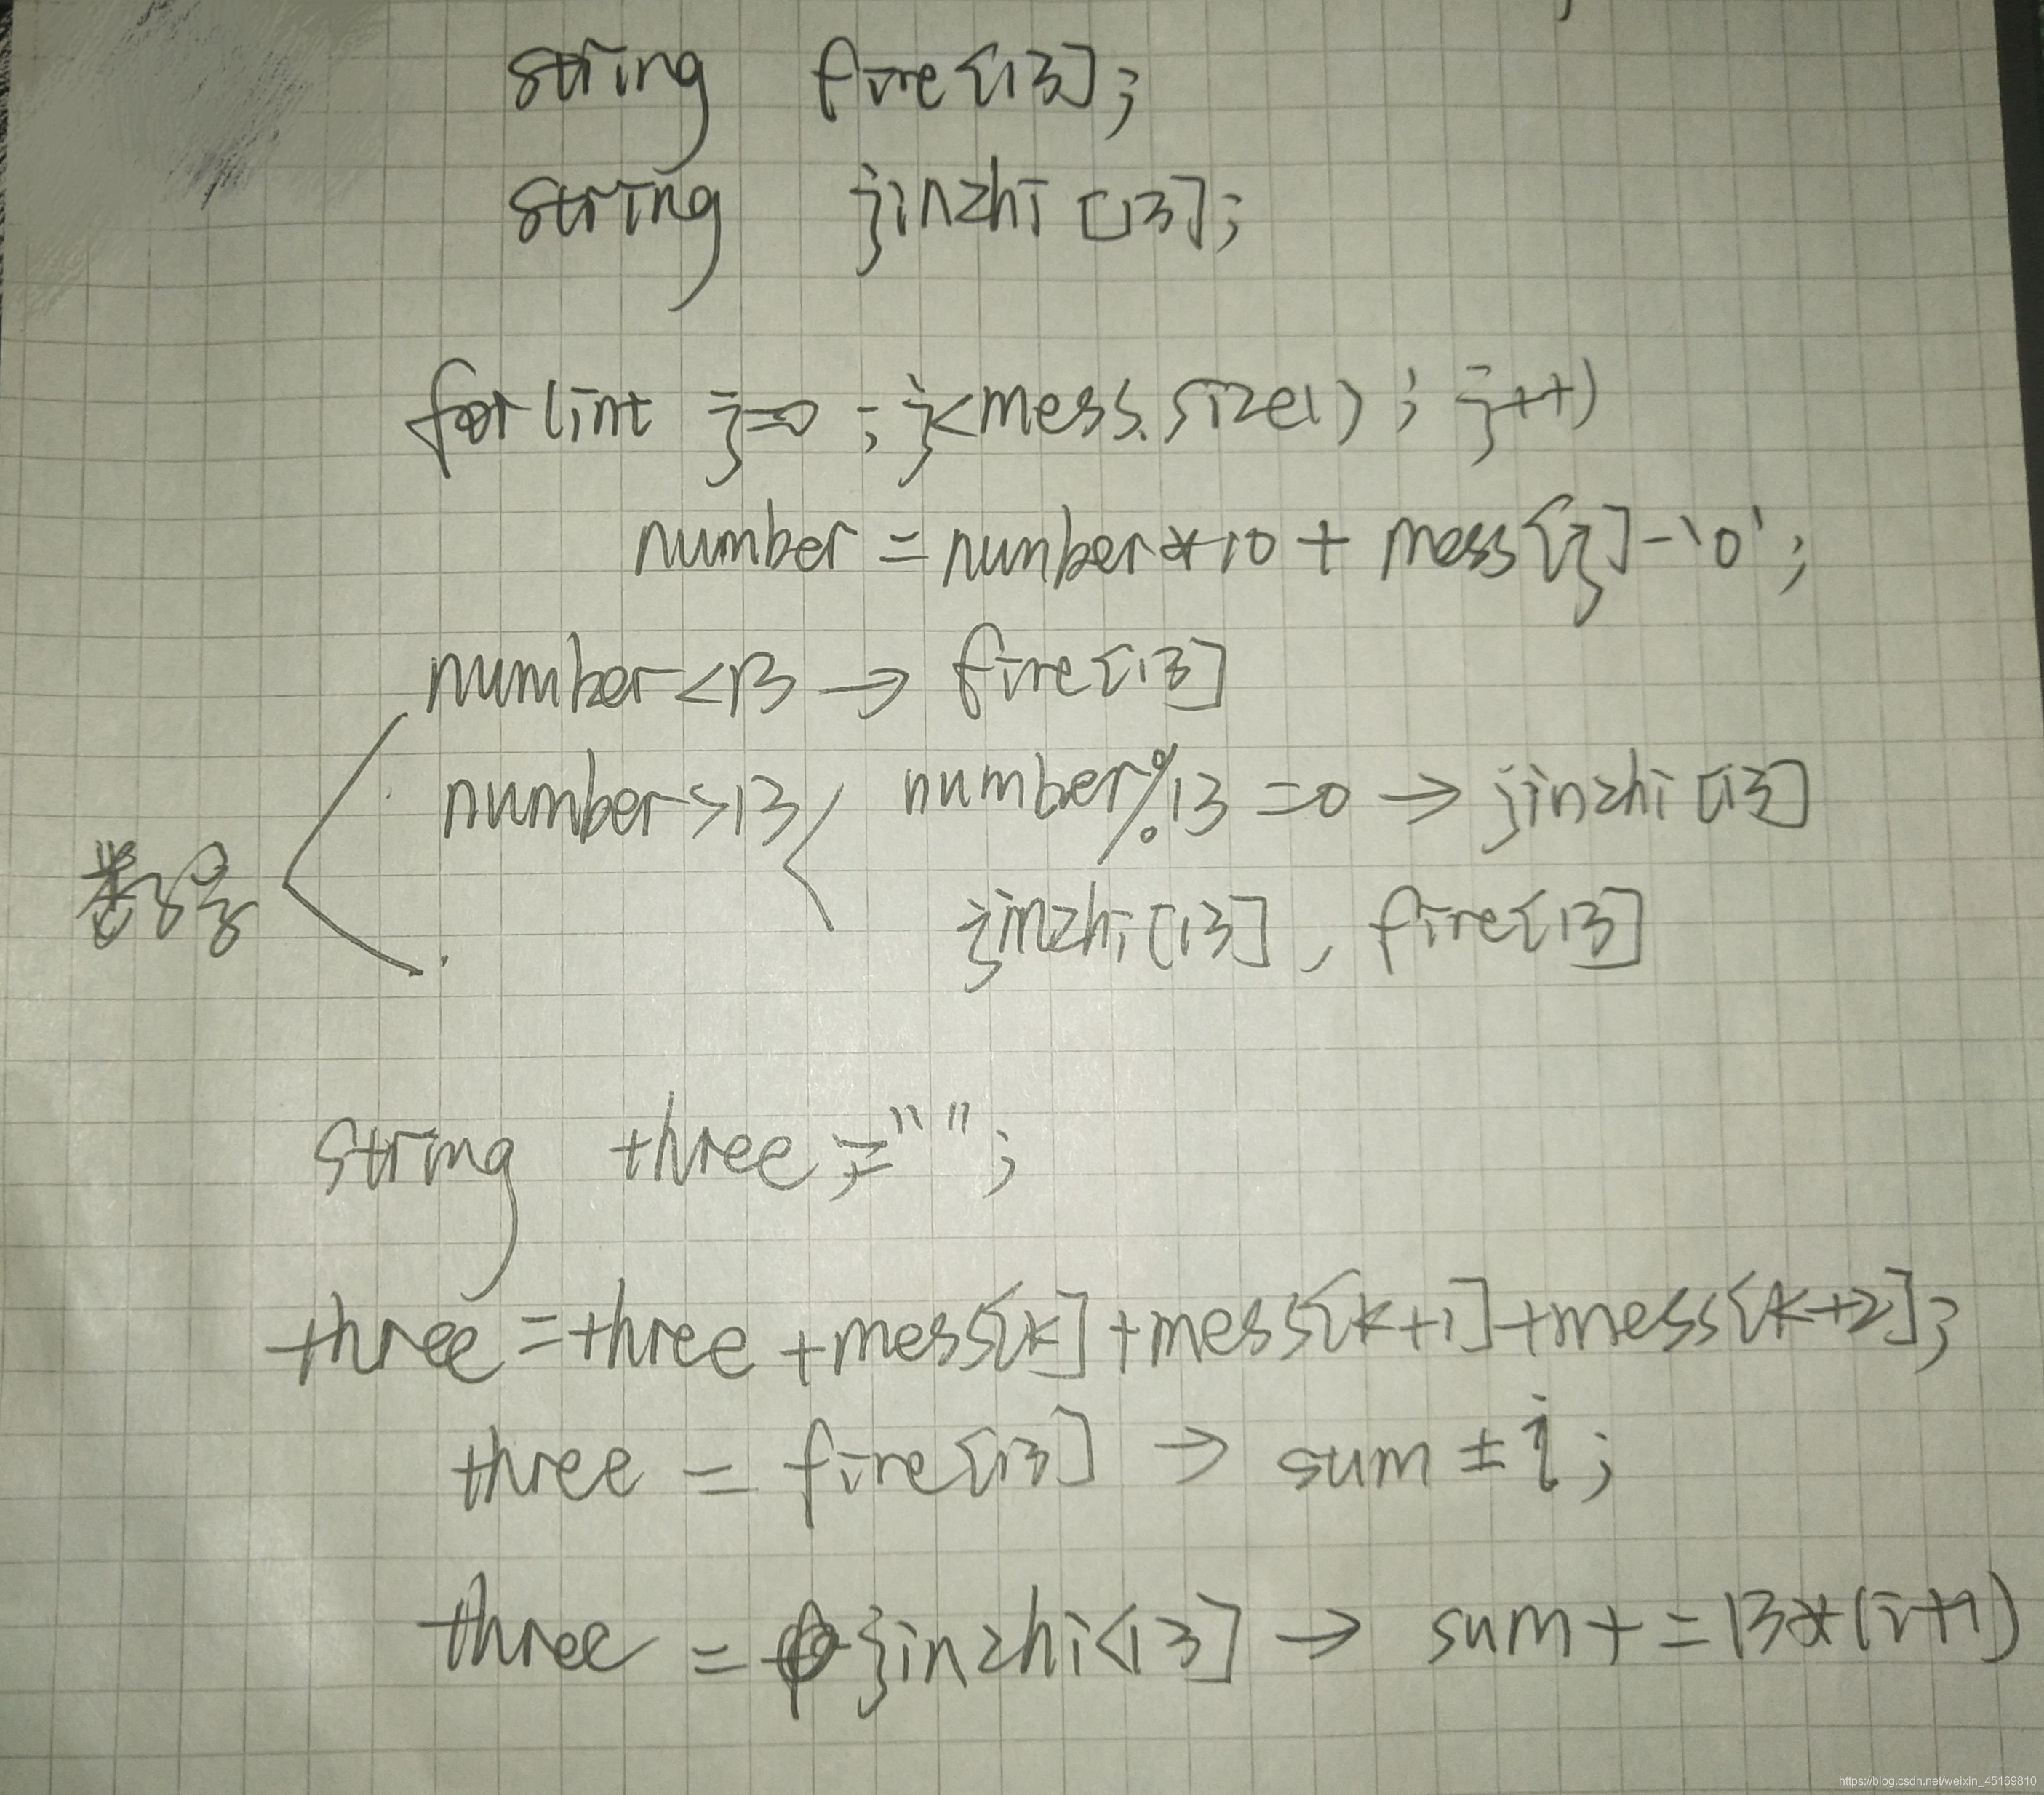 string fire[13];
string jinzhi [13];
for(int j=0 ; j<mess.size() ; j++)
number = number*10 + mess[j]-'0';
number<13 → fire[13]
number>13 number%13 =0 → jinzhi [13]
数字
jinzhi[13] , fire[13]
string three ="";
three = three +mess[k] +mess[k+1] +mess[k+2];
three = fire[13] → sum ± i ;
three = jinzhi[13] → sum + =13*(i+1)
https://blog.csdn.net/weixin_45169810